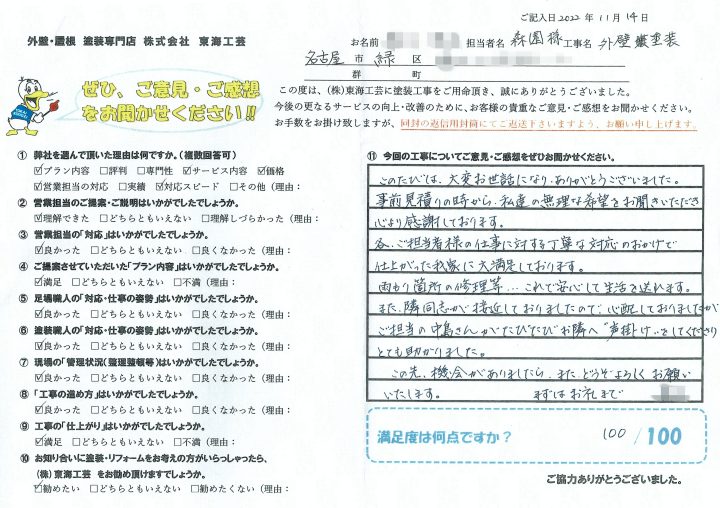 ご記入日2022年11月14日
外壁・屋根 塗装専門店 株式会社 東海工芸
お名前 担当者名 森園様 工事名 外壁塗装
名古屋市 緑区
群 町
ぜひ、ご意見・ご感想
をお聞かせください!!
この度は、(株)東海工芸に塗装工事をご用命頂き、誠にありがとうございました。
今後の更なるサービスの向上・改善のために、お客様の貴重なご意見・ご感想をお聞かせください。
お手数をお掛け致しますが、同封の返信用封筒にてご返送下さいますよう、お願い申し上げます。
① 弊社を選んで頂いた理由は何ですか。(複数回答可)
☑プラン内容 □評判 □専門性 ☑サービス内容 ☑価格
☑営業担当の対応 □実績 ☑対応スピード □その他(理由:
② 営業担当のご提案・ご説明はいかがでしたでしょうか。
☑理解できた □どちらともいえない □理解しづらかった(理由:
③ 営業担当の「対応」はいかがでしたでしょうか。
☑良かった □どちらともいえない □良くなかった(理由:
④ ご提案させていただいた「プラン内容」はいかがでしたでしょうか。
☑満足 □どちらともいえない □不満(理由:
⑤ 足場職人の「対応・仕事の姿勢」はいかがでしたでしょうか。
☑良かった □どちらともいえない □良くなかった(理由:
⑥ 塗装職人の「対応・仕事の姿勢」はいかがでしたでしょうか。
☑良かった □どちらともいえない □良くなかった(理由:
⑦ 現場の「管理状況(整理整頓等)はいかがでしたでしょうか。
☑良かった □どちらともいえない □良くなかった(理由:
⑧ 「工事の進め方」はいかがでしたでしょうか。
☑良かった □どちらともいえない □良くなかった(理由:
⑨ 工事の「仕上がり」はいかがでしたでしょうか。
☑満足 □どちらともいえない □不満(理由:
⑩ お知り合いに塗装・リフォームをお考えの方がいらっしゃったら、
(株)東海工芸 をお勧め頂けますでしょうか。
☑勧めたい □どちらともいえない □勧めたくない(理由:
⑪ 今回の工事についてご意見・ご感想をぜひお聞かせください。
このたびは、大変お世話になり、ありがとうございました。
事前見積りの時から、私達の無理な希望をお聞きいただき
心より感謝しております。
各、ご担当者様の仕事に対する丁寧な対応のおかげで
仕上がった我家に大満足しております。
雨もり箇所の修理等…これで安心して生活を送れます。
また、隣同志が接近しておりましたので、心配しておりましたが
ご担当の中島さんがたびたびお隣へ"声掛け"をしてくださり
とても助かりました。
この先、機会がありましたら、また、どうぞよろしくお願い
いたします。 まずはお礼まで
満足度は何点ですか? 100/100
ご協力ありがとうございました。